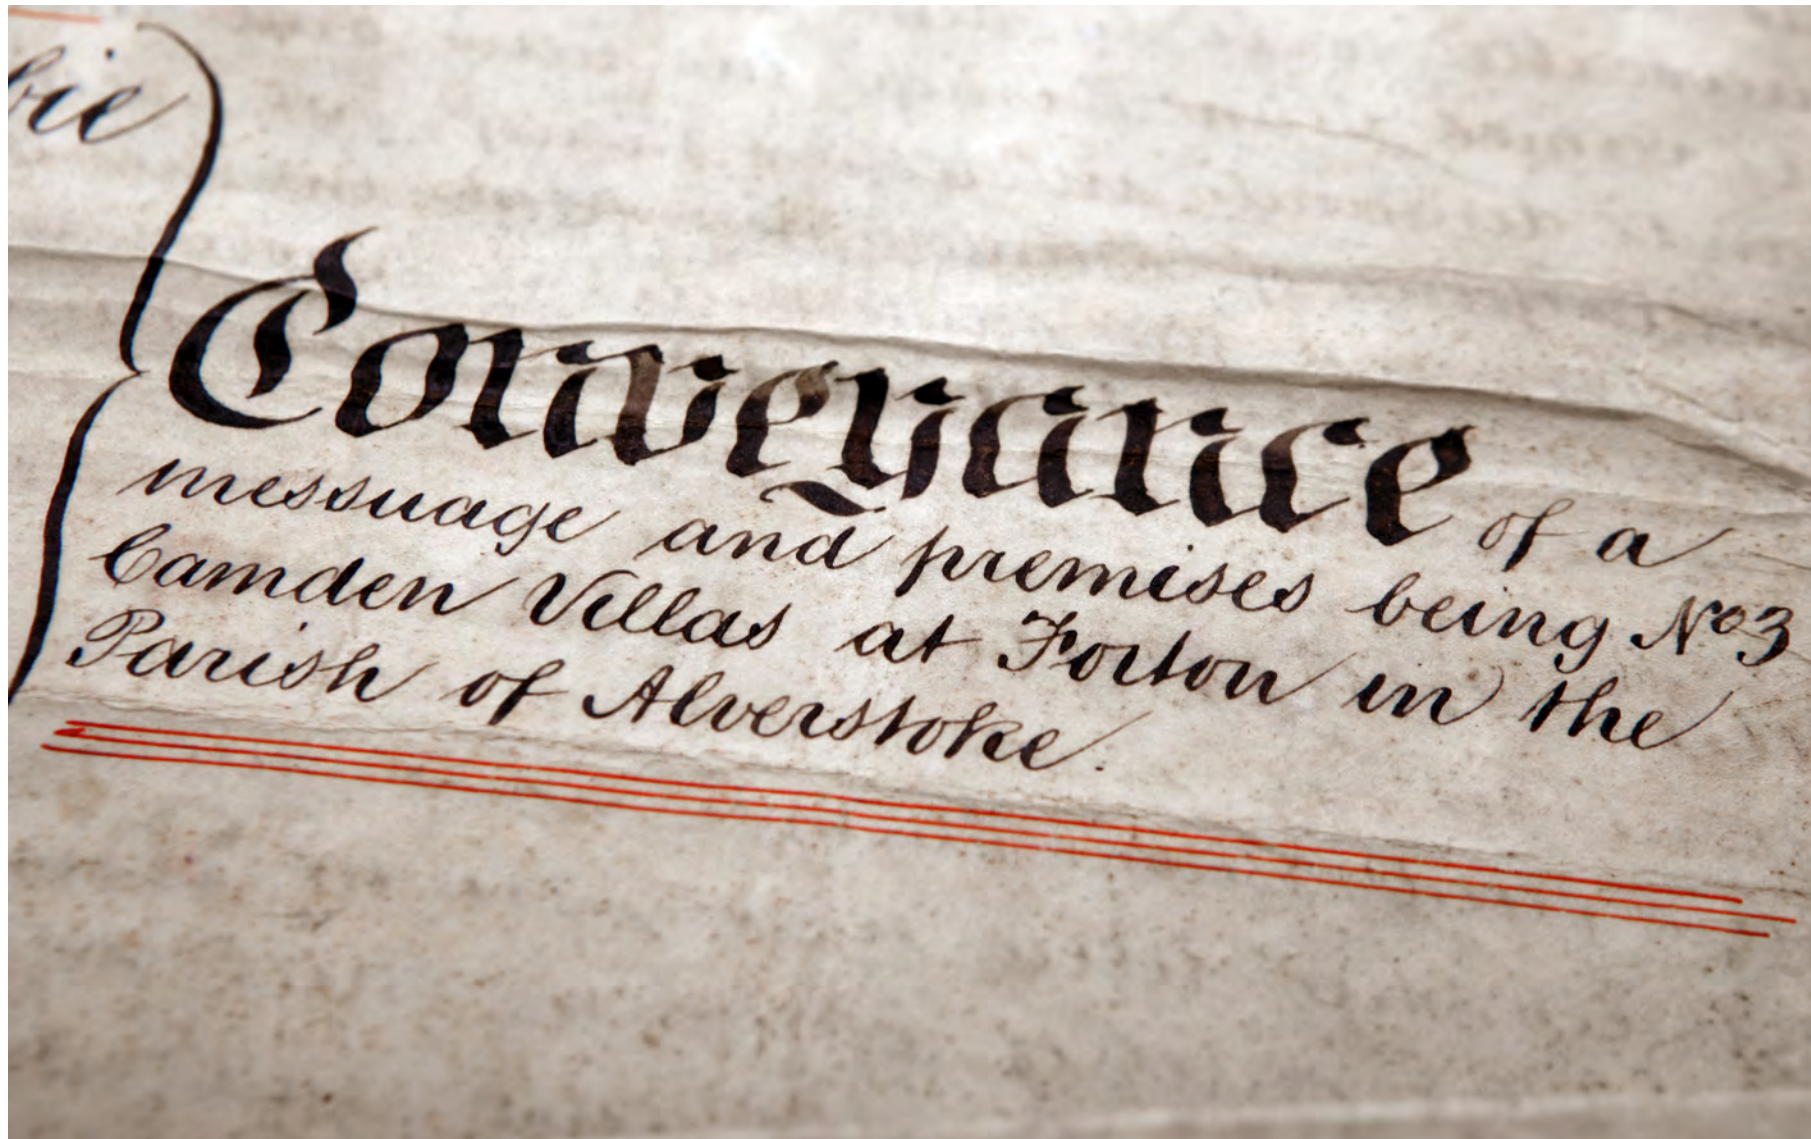 Conveyance of a
messuage and premises being No 3
Camden Villas at Forton in the
Parish of Alverstoke.